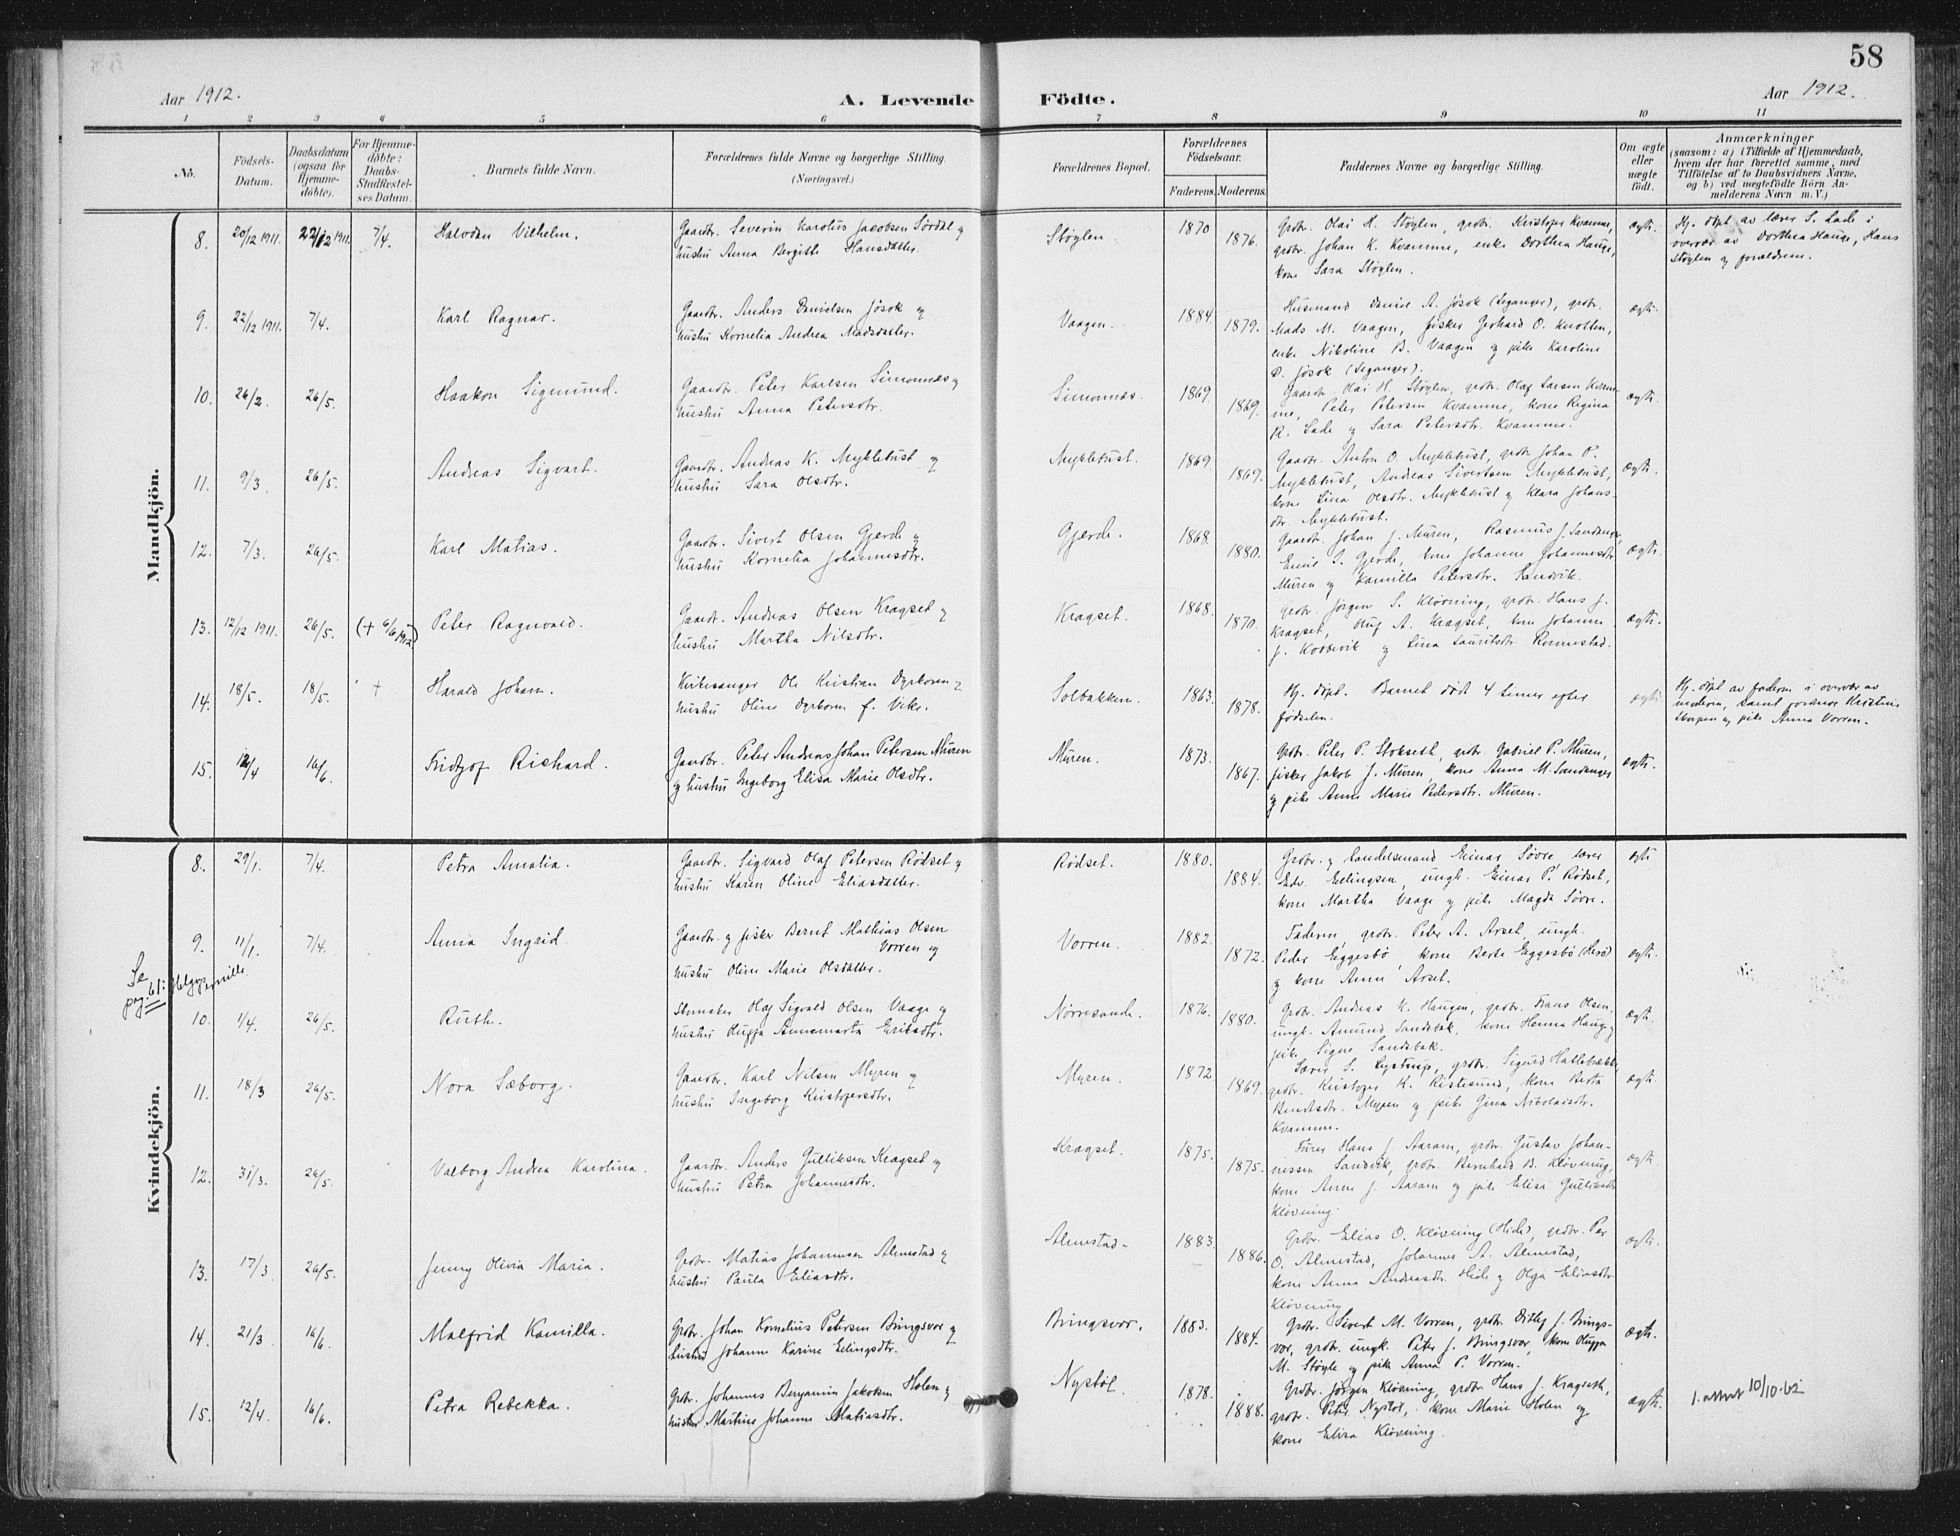 58
Aar 1912.
A. Levende Födte.
Aar 1912.
1 2 3 4 5 6 7 8 9 10 11
No.
Födsels-
Datum.
Daabsdatum
(ogsaa for
Hjemme-
döbte).
For Hjemme-
döbte:
Daabs-
Stadfæstel-
ses Datum.
Barnets fulde Navn.
Forældrenes fulde Navne og borgerlige Stilling.
(Næringsvei.)
Forældrenes Bopæl.
Forældrenes
Födselsaar.
Faderens. Moderens.
Faddernes Navne og borgerlige Stilling.
Om ægte
eller
uægte
födt.
Anmærkninger
(saasom: a) i Tilfælde af Hjemmedaab,
hvem der har forrettet samme, med
Tilföielse af to Daabsvidners Navne,
og b) ved uægtefödte Börn An-
melderens Navn m. V.)
Mandkjön.
8. 20/12 1911. 22/12 1911. 7/4. Halvdan Vilhelm.
Gaardbr. Severin Karolus Jacobsen Sördal og
hustru Anna Bergitte Hansdatter.
Støylen. 1870 1876.
Grdbr. Olai H. Støylen, grdbr. Kristofer Kvamme,
grdbr. Johan K. Kvamme, enke Dorthea Hauge,
kone Sara Støylen.
ægte.
Hj. døpt av lærer S. Lade i
overvær av Dorthea Hauge, Hans
Støylen og forældrene.
9. 22/12 1911. 7/4. Karl Ragnar.
Gaardbr. Anders Danielsen Jøsok og
hustru Kornelia Andrea Madsdatter.
Vaagen. 1884. 1879.
Husmand Daniel A. Jøsok (Leganger), grdbr.
Mads M. Vaagen, fisker Gerhard O. Knotten,
enke Nikoline B. Vaagen og pike Karoline
D. Jøsok (Leganger).
ægte.
10. 26/2. 26/5. Haakon Sigmund.
Gaardbr. Peter Karlsen Simonnæs og
hustru Anna Petersdtr.
Simonnæs. 1869. 1869.
Gaardbr. Olai H. Støylen, grdbr. Olaf Larsen Kvam-
me, Peter Petersen Kvamme, kone Regina
R. Lade og Sara Petersdtr. Kvamme.
ægte.
11. 9/3. 26/5. Andreas Sigvart.
Gaardbr. Andreas K. Myklebust og
hustru Sara Olsdtr.
Myklebust. 1869. 1869.
Gaardbr. Anton O. Myklebust, grdbr. Johan P.
Myklebust, Andreas Sivertsen Myklebust,
kone Lina Olsdtr. Myklebust og Klara Johans-
dtr. Myklebust.
ægte.
12. 7/3. 26/5. Karl Matias.
Gaardbr. Sivert Olsen Gjerde og
hustru Kornelia Johannesdtr.
Gjerde. 1868. 1880.
Gaardbr. Johan J. Muren, Rasmus J. Sandanger,
Emil S. Gjerde, kone Johanne Johannesdtr.
Muren og Kamilla Petersdtr. Sandvik.
ægte.
13. 12/12 1911. 26/5. († 6/6 1912) Peter Ragnvald.
Gaardbr. Andreas Olsen Kragset og
hustru Martha Nilsdtr.
Kragset. 1868. 1870.
Grdbr. Jørgen S. Kløvning, grdbr. Hans J.
Kragset, Oluf A. Kragset, kone Johanne
J. Kobbevik og Lina Lauritsdtr. Rönnestad.
ægte.
14. 18/5. 18/5. † Harald Johan.
Kirkesanger Ole Kristian Dyrkoren og
hustru Oline Dyrkoren f. Vike.
Solbakken. 1863. 1878.
Hj. døpt. Barnet død 4 timer efter
fødselen.
ægte
Hj. døpt av faderen i overvær av
moderen, samt jordmor Kristine
Skorpen og pike Anna Vorren.
15. 12/4 16/6. Fridtjof Richard.
Gaardbr. Peter Andreas Johan Petersen Muren
og hustru Ingeborg Elisa Marie Olsdtr.
Muren. 1873. 1867.
Grdbr. Peter P. Stokseth, grdbr. Gabriel P. Muren,
fisker Jakob J. Muren, kone Anna M. Sandanger
og pike Anne Marie Pedersdtr. Muren.
ægte.
Kvindekjön.
8. 29/1. 7/4. Petra Amalia.
Gaardbr. Sigvard Olaf Petersen Rødset og
hustru Karen Oline Eliasdatter.
Rødset. 1880. 1884.
Grdbr. og handelsmand Einar Søvre, lærer
Edv. Erlingsen, ungk. Einar P. Rødset,
kone Martha Vaage og pike Magda Søvre.
ægte
9. 11/1. 7/4. Anna Ingrid.
Gaardbr. og fisker Bernt Mathias Olsen
Vorren og
hustru Oline Marie Olsdatter.
Vorren. 1882. 1872.
Faderen, grdbr. Peter A. Arset, ungk.
Peder Eggesbø, kone Berte Eggesbø (Herø)
og kone Anne Arset.
ægte.
Se
pag. 61: Helga Pernille
10. 1/4. 26/5. Ruth.
Skomaker Olaf Sigvald Olsen Vaage og
hustru Oluffa Annemarta Eriksdtr.
Nørresande. 1876. 1880.
Grdbr. Andreas K. Haugen, grdbr. Hans Olsen,
ungk. Amund Sandsbak, kone Henna Hauge og
pike Signe Sandsbak.
ægte.
11. 18/3 26/5. Nora Sæborg.
Gaardbr. Karl Nilsen Myren og
hustru Ingeborg Kristofersdtr.
Myren. 1872 1869.
Lærer S. Systrup, grdbr. Sigurd Hallebrekke,
grdbr. Kristofer K. Ristesund, kone Berta
Berntsdtr. Myren og pike Gina Nikolaisdtr.
Kvamme.
ægte.
12. 31/3. 26/5. Valborg Andrea Karolina.
Gaardbr. Anders Gulliksen Kragset og
hustru Petra Johannesdtr.
Kragset. 1875. 1875.
Furer Hans J. Aaram, grdbr. Gustav Johan-
nessen Sandvik, grdbr. Bernhard B. Kløvning,
kone Anne J. Aaram og pike Elisa Gulliksdtr
Kløvning.
ægte.
13. 17/3. 26/5. Jenny Olivia Maria.
Grdbr. Matias Johannesen Almestad og
hustru Paula Eliasdtr.
Almestad. 1883. 1886.
Grdbr. Elias O. Kløvning (Hide), grdbr. Per
O. Almestad, Johannes A. Almestad,
kone Anna Andreasdtr. Hide og Olga Eliasdtr.
Kløvning
ægte.
14. 21/3 16/6. Malfrid Kamilla.
Grdbr. Johan Kornelius Petersen Bringsvor og
hustru Johanne Karine Erlingsdtr.
Bringsvor. 1883. 1884.
Grdbr. Sivert M. Vorren, grdbr. Ditlef J. Brings-
vor, grdbr. ungk. Peter J. Bringsvor, kone Oluffa
M. Støyle og pike Anna P. Vorren.
ægte.
15. 12/4. 16/6. Petra Rebekka.
Grdbr. Johannes Benjamin Jakobsen Holen og
hustru Martine Johanne Matiasdtr.
Nystøl. 1878. 1888.
Grdbr. Jørgen Kløvning, grdbr. Hans J. Kragseth,
grdbr. Peter Nystøl, kone Marie Holen og
kone Elisa Kløvning.
ægte.
1. attest 10/10-62